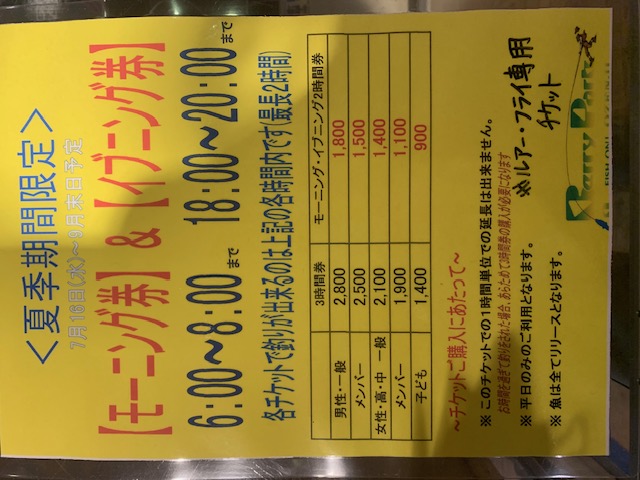 ＜夏季期間限定＞
7月16日(水)～9月末日予定
【モーニング券】&【イブニング券】
6:00～8:00まで 18:00～20:00まで
各チケットで釣りが出来るのは上記の各時間内です(最長2時間)
3時間券 モーニング・イブニング2時間券
男性・一般 2,800 1,800
メンバー 2,500 1,500
女性・高・中 一般 2,100 1,400
メンバー 1,900 1,100
子ども 1,400 900
～チケットご購入にあたって～
※このチケットでの1時間単位での延長は出来ません。
お時間を過ぎて釣りをされた場合、あらためて3時間券の購入が必要になります
※平日のみのご利用となります。
※魚は全てリリースとなります。
※ルアー・フライ専用
チケット
FISH ON!